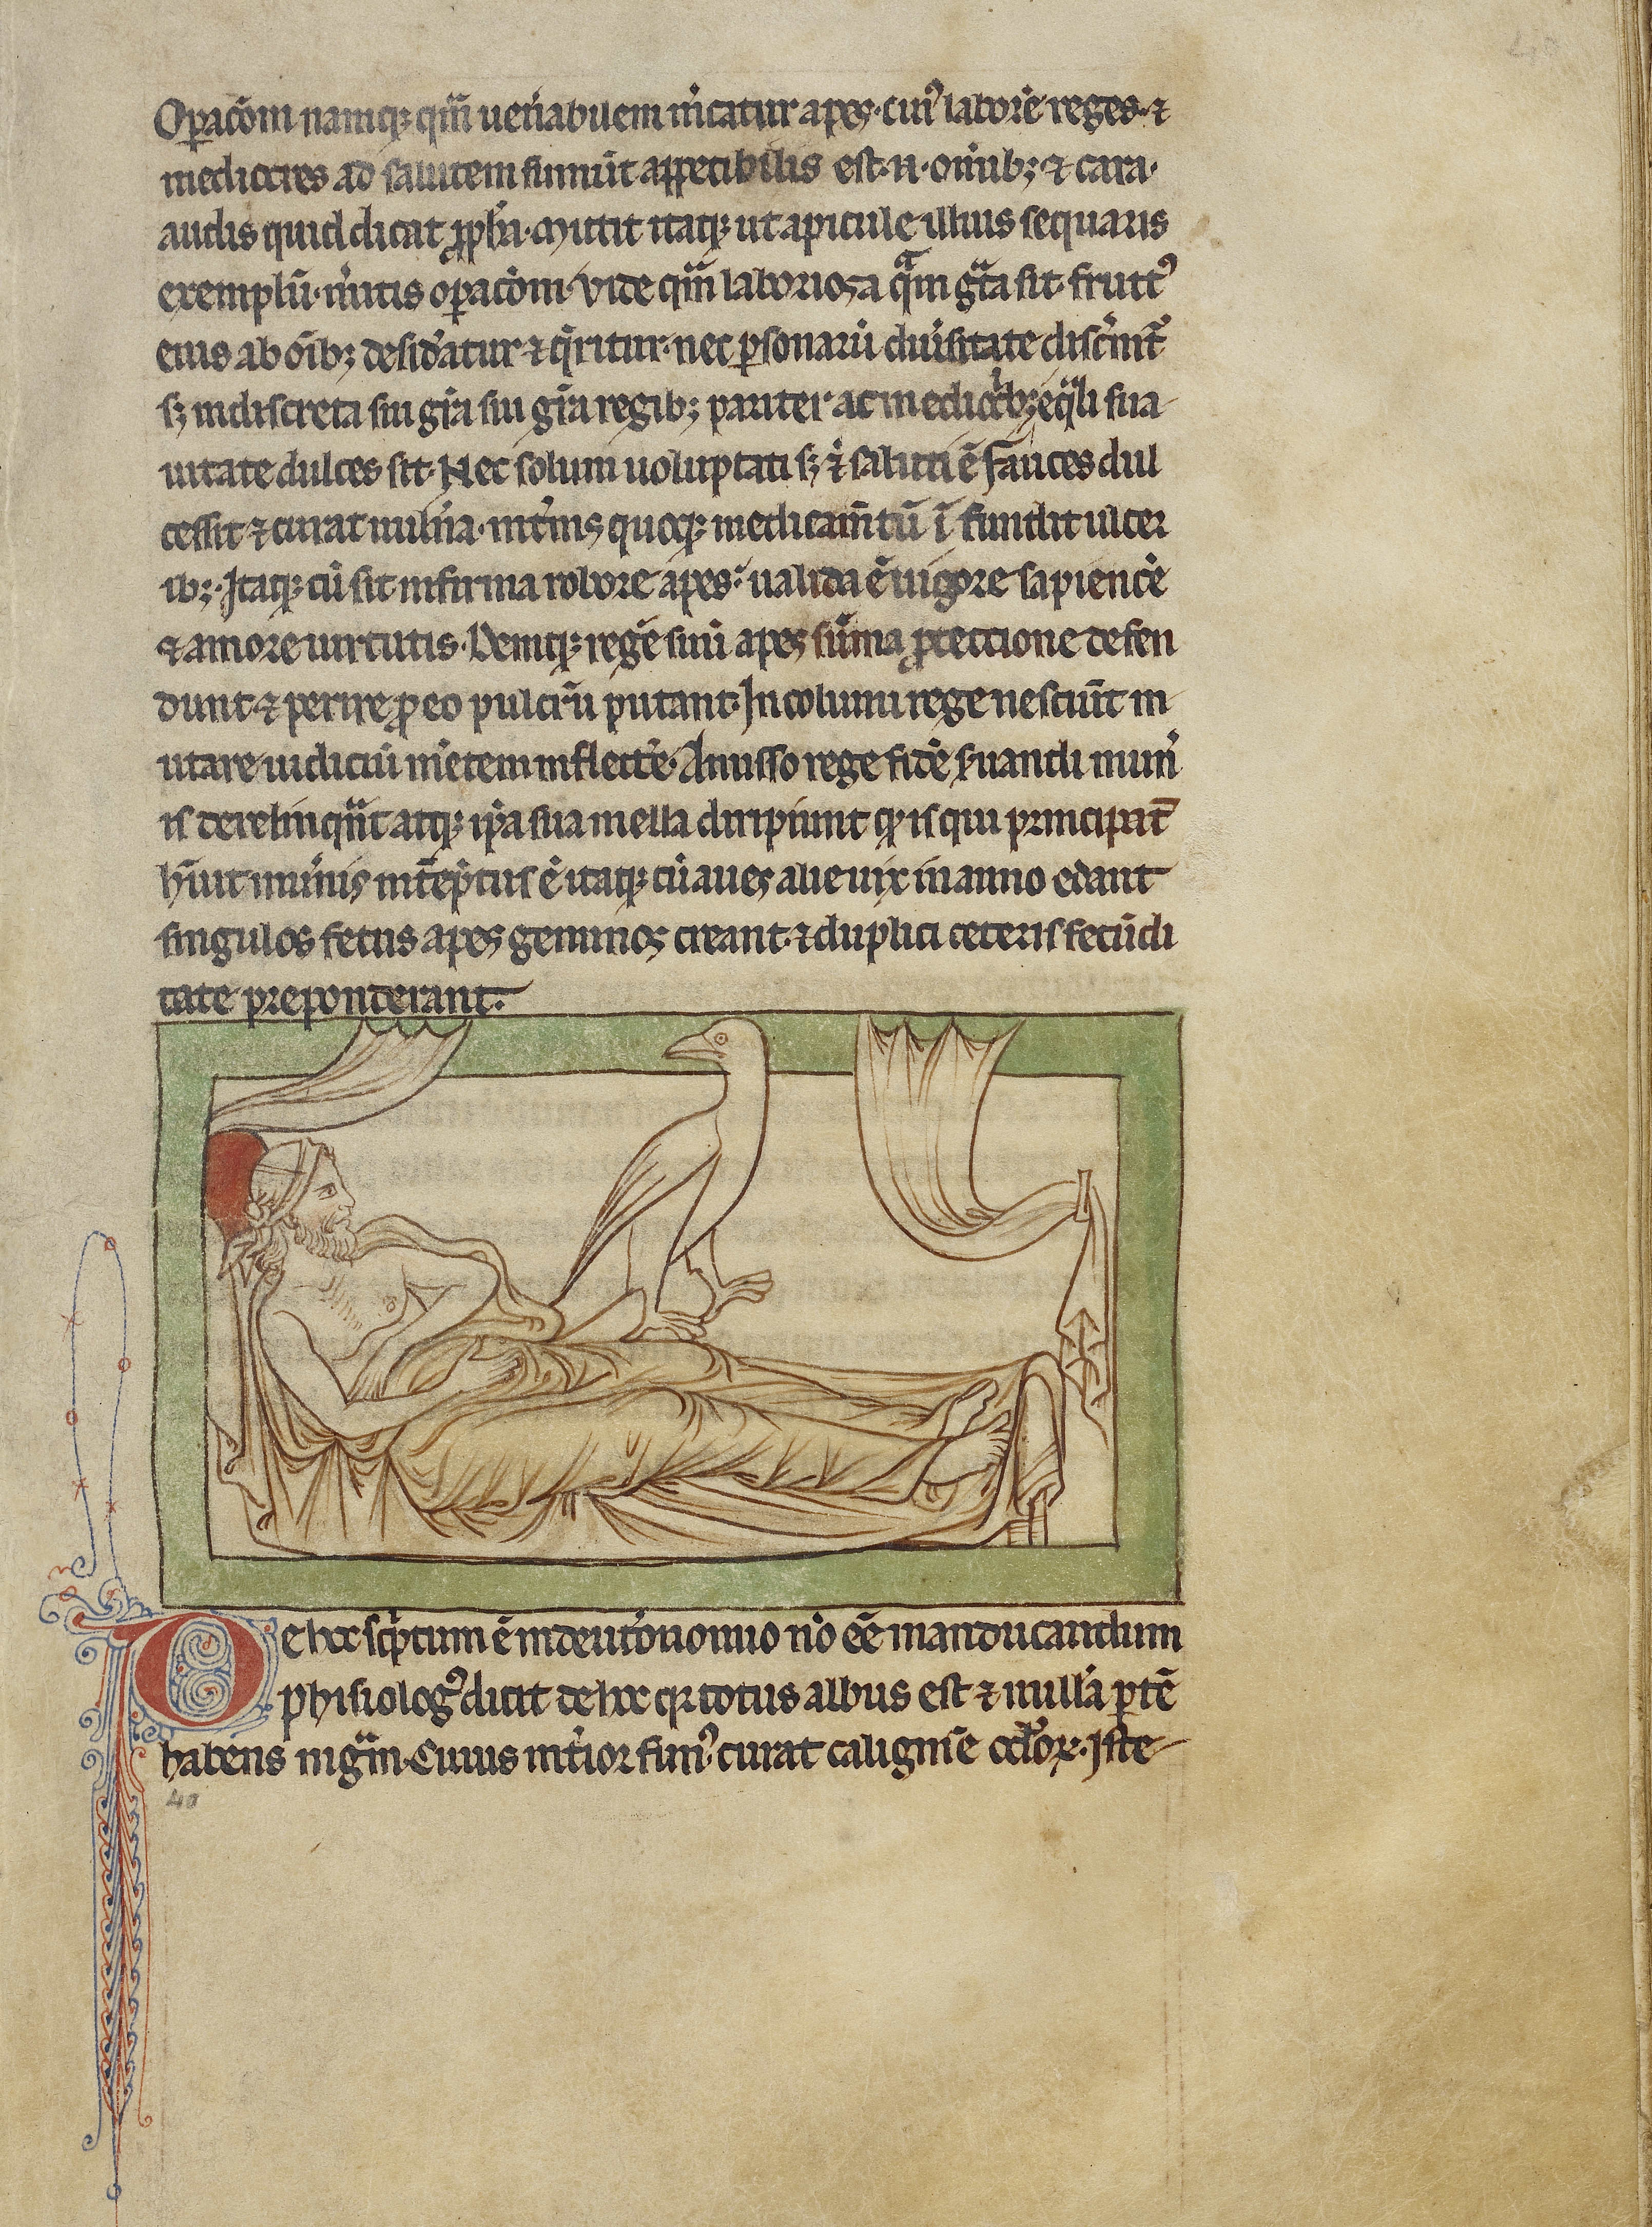 Opac̄om namq; qm̄ uen̾abilem m̾catur apes · cui᾽ labore reges · ⁊
mediocres ad salutem sumūt appetibilis est · n · om̄ib; ⁊ cara ·
audis quid dicat ꝓph̄a · Mittit itaq; ut apicule illius sequaris
exemplū · imitis opac̄om · Vide qm̄ laboriosa qᵃm gr̄a sit · fruct᾽
eius ab oīb; desid̾atur ⁊ q̾ritur · nec psonarū diu̾sitate disc̾nit᾽
s; indiscreta sui gr̄a sui gr̄a regib; pariter ac mediocⁱb; eq̄li sua
uitate dulces sit · Nec solum uoluptati s; ⁊ saluti ē fauces dul
cessit ⁊ curat uuln̾a · int̾nis quoq; medicam̄tū ī fundit ulcer
ib; · Itaq; cū sit infirma robore apes · ualida ē uigore sapiencie
⁊ amore uirtutis · Deniq; regē suū apes sūma ꝓtectione defen
dunt ⁊ perire ꝓ eo pulcrū putant · Incolumi rege nesciūt m
utare iudiciū m̄tem inflecte · Amisso rege fidē s̾uandi mun̾
is derelinqūt atq; ip̄a sua mella diripiunt qⁱ is qui principat̄
h̄uit mun̾is int̾ept᾽ ē itaq; cū aues alie uix in anno edant
singulos fetus apes geminos creant ⁊ duplici ceteris fecūdi
tate preponderant ·
De hoc scⁱptum ē in deut̾onomio nō eē manducandum
phisiolog᾽ dicit de hoc q; totus albus est ⁊ nullā ptē
habens nigᵃm · Cuius int̾ior fim᾽ curat caliginē oc̄lor · Iste
40